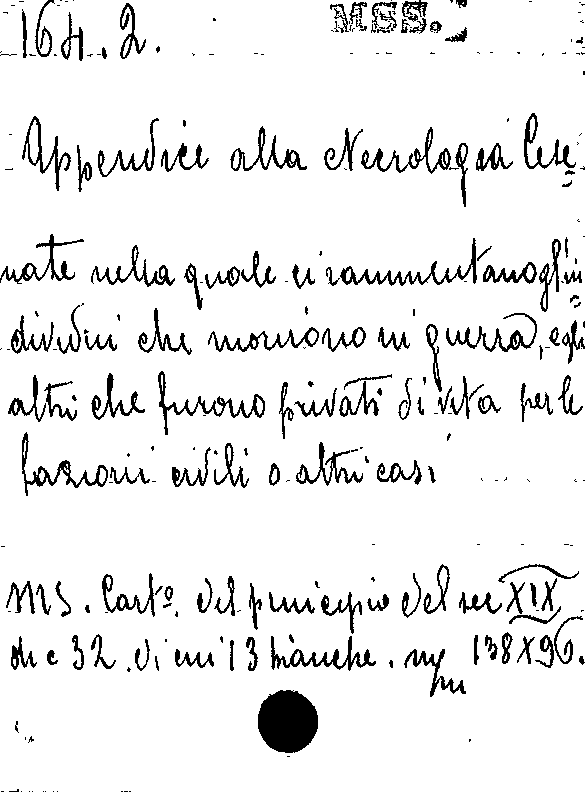 164.2.
MSS.
Appendice alla Necrologia Cese=
nate nella quale si rammentano gl'in=
dividui che morirono in guerra, e gli
altri che furono privati di vita per le
fazioni civili o altri casi
MS. Carto. del principio del sec XIX
di c 32. di cui 13 bianche. mm 138X96.